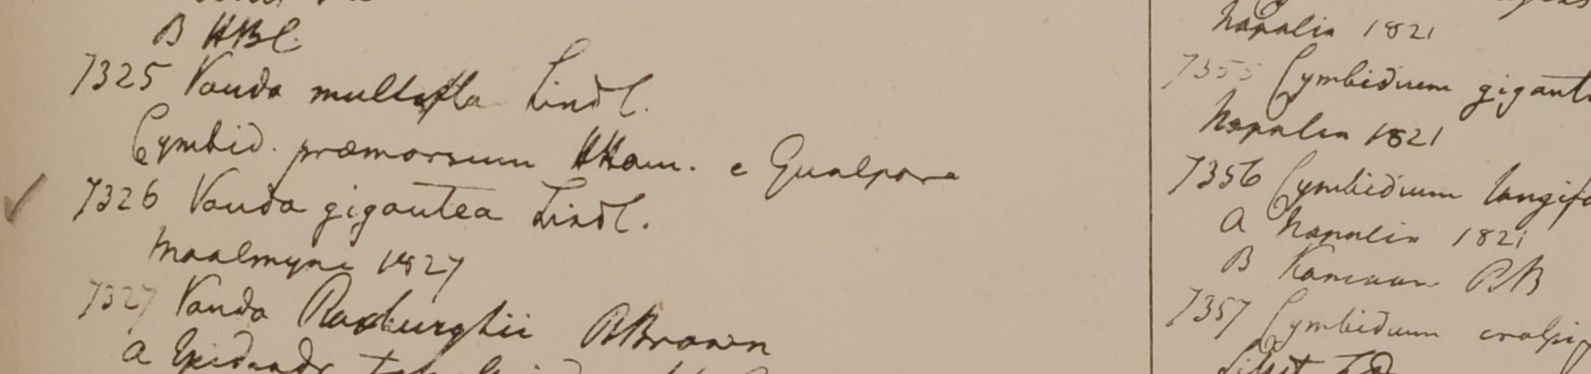 B HBC.
7325 Vanda multifla Lindl.
Cymbid. præmorsum HHam. e Gualpara
7326 Vanda gigantea Lindl.
Moalmyne 1827
7327 Vanda Roxburghii RBrown
a Epidendr
Napalia 1821
7355 Cymbidium gigante
Napalia 1821
7356 Cymbidium longifo
a Napalia 1821
B Kamaon RB
7357 Cymbidium